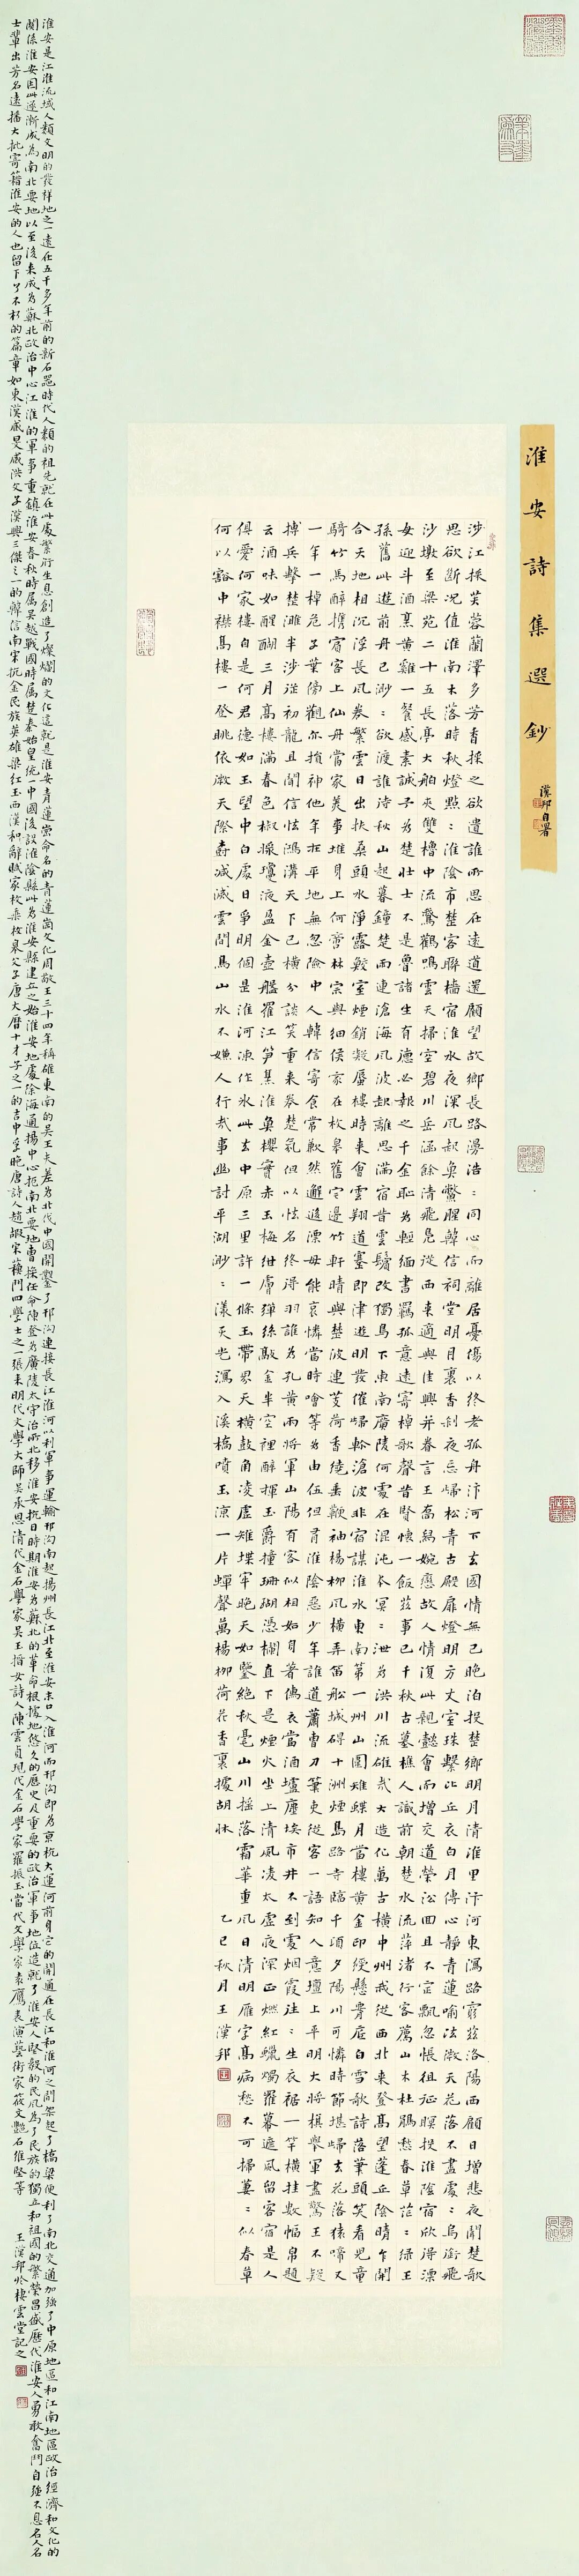 淮安詩集選鈔
漢邦自署
涉江採芙蓉蘭澤多芳香採之欲遺誰所思在遠道還顧望故鄉長路漫浩:同心而離居憂傷以終老孤舟汴河下去國情無已晚泊投楚鄉明月清淮里汴河東瀉路窮茲洛陽西顧日增悲夜聞楚歌
思欲斷況值淮南木落時秋燈點:淮陰市楚客聯檣宿淮水夜深風起魚鱉腥韓信祠堂明月裏香剎夜忘歸松青古殿扉燈明方丈室珠繫比丘衣白月傳心靜青蓮喻法微天花落不盡處:鳥銜飛
沙墩至梁苑二十五長亭大舶夾雙櫓中流驚鸛鳴雲天掃空碧川岳涵餘清飛鳧從西來適與佳興并眷言王喬舄婉戀故人情復此親懿會而增交道榮沿回且不定飄忽悵徂征暝投淮陰宿欣得漂
母迎斗酒烹黃雞一餐感素誠予為楚壯士不是魯諸生有德必報之千金恥為輕緬書羈孤意遠寄棹歌聲昔賢懷一飯茲事已千秋古墓樵人識前朝楚水流萍渚行客薦山木杜鵑愁春草茫:綠王
孫舊此遊前舟已渺:欲渡誰待秋山起暮鐘楚雨連滄海風波起離思滿宿昔雲鬢改獨鳥下東南廣陵何處在混沌本冥:泄為洪川流雄哉大造化萬古橫中州我從西北來登高望蓬丘陰晴乍開
合天地相沉浮長風卷繁雲日出扶桑頭水淨露鮫室煙銷凝蜃樓時來會雲翔道蹇即津遊明發催歸軫滄波非宿謀淮水東南第一州山圍雉蝶月當樓黃金印綬懸腰底白雪歌詩落筆頭笑看兒童
騎竹馬醉攜賓客上仙舟當家美事堆身上何啻林宗與細侯家在枚皋舊宅邊竹軒晴與楚波連芰荷香繞垂鞭袖楊柳風橫弄笛船城礙十洲煙島路寺臨千頃夕陽川可憐時節堪歸去花落猿啼又
一年一棹危于葉傍觀亦損神他年在平地無忽險中人韓信寄食常歉然邂逅漂母能哀憐當時噲等為由伍但有淮陰惡少年誰道蕭曹刀筆吏從容一語知人意壇上平明大將旗舉軍盡驚王不疑
搏兵擊楚濉半涉從初龍且聞信怯鴻溝天下已橫分談笑重來卷楚氣但以怯名終得羽誰為孔黃兩將軍山陽有客似相如身著傭衣當酒壚塵埃市井不到處烟霞往:生衣裾一竿橫挂數幅帛題
云酒味如醍醐三月高樓滿春色椒撲瓊液盈金壺艦羅江筍焦淮魚櫻實赤玉梅紺膚彈絲敲金半空裡醉揮玉爵撞珊瑚憑欄直下是煙火坐上清風凌太虛夜深正燃紅蠟燭羅幕遮風留客宿是人
俱愛何家樓自是何君德如玉望中白處日爭明個是淮河凍作冰此去中原三里許一條玉帶界天橫鼓角凌虛雉堞牢晚天如鑒絕秋毫山川搖落霜華重風日清明雁字高病愁不可掃萋:似春草
何以豁中襟馬樓一登眺依微天際舂減滅雲間鳥山水不嫌人行哉事幽討平湖渺:漾天光瀉入溪橋噴玉涼一片蟬聲萬楊柳荷花香裏據胡牀
乙巳秋月王漢邦
淮安是江淮流域人類文明的發祥地之一遠在五千多年前的新石器時代人類的祖先就在此處繁衍生息創造了燦爛的文化這就是淮安青蓮崗命名的青蓮崗文化周敬王三十四年稱雄東南的吳王夫差為北伐中國開鑿了邗溝連接長江淮河以利軍事運輸邗溝南起揚州長江北至淮安末口入淮河而邗溝即為京杭大運河前身它的開通在長江和淮河之間架起了橋梁便利了南北交通加強了中原地區和江南地區政治經濟和文化的
關係淮安因此逐漸成為南北要地以至後來成為蘇北政治中心江淮的軍事重鎮淮安春秋時屬吳越戰國時屬楚秦始皇統一中國後設淮陰縣此為淮安縣建立之始淮安地處徐海通揚中心扼南北要地曹操任命陳登為廣陵太守治所北移淮安抗日時期淮安為蘇北的革命根據地悠久的歷史及重要的政治軍事地位造就了淮安人堅毅的民風為了民族的獨立和祖國的繁榮昌盛歷代淮安人勇敢奮鬥自強不息名人名
士輩出芳名遠播大批寄籍淮安的人也留下了不朽的篇章如東漢臧旻臧洪父子漢興三傑之一的韓信南宋抗金民族英雄梁紅玉西漢和辭賦家枚乘枚皋父子唐大曆十才子之一的吉中孚晚唐詩人趙嘏宋蘇門四學士之一張耒明代文學大師吳承恩清代金石學家吳玉搢女詩人陳雲貞現代金石學家羅振玉當代文學家袁鷹表演藝術家筱文艷石維堅等
王漢邦於棲雲堂記之